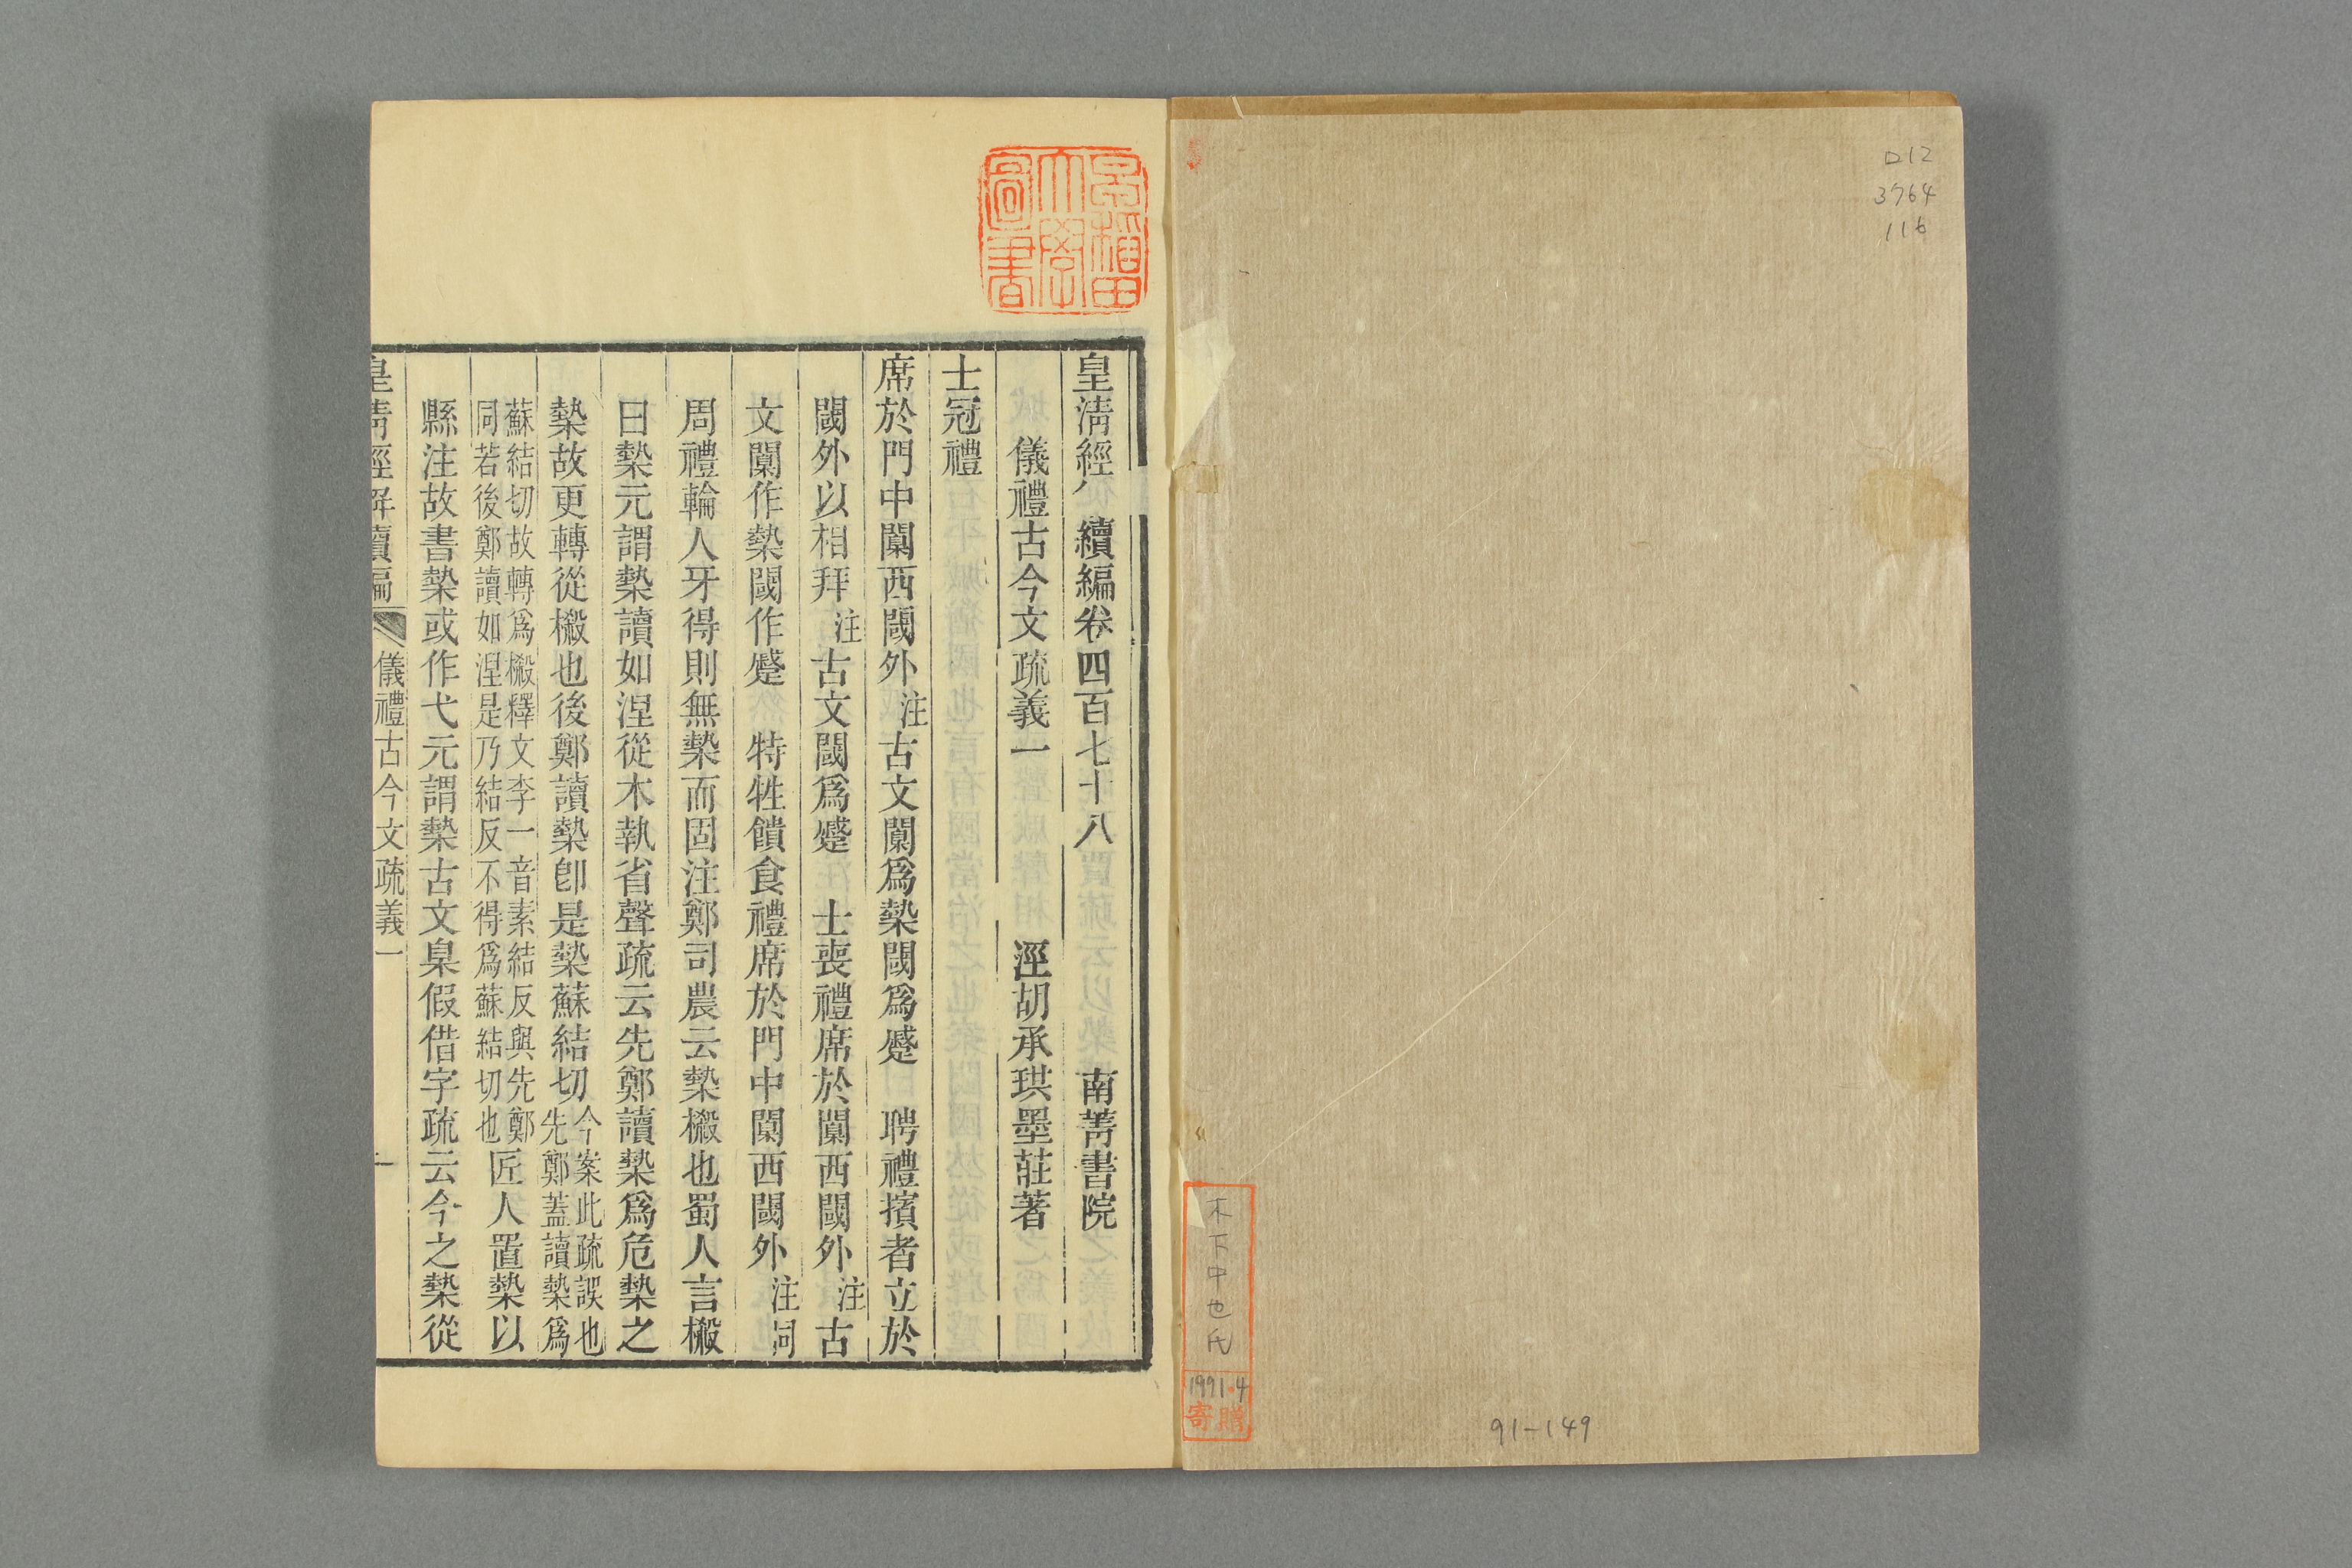 D12
3764
116
木下中也氏
1991.4
寄贈
91-149
早稲田大學圖書
皇清經 續編卷四百七十八 南菁書院
儀禮古今文疏義一 涇胡承珙墨莊著
士冠禮
席於門中闑西閾外注古文闑爲槷閾爲蹙 聘禮擯者立於
閾外以相拜注古文閾爲蹙 士喪禮席於闑西閾外注古
文闑作槷閾作蹙 特牲饋食禮席於門中闑西閾外注同
周禮輪人牙得則無槷而固注鄭司農云槷樧也蜀人言樧
曰槷元謂槷讀如涅從木執省聲疏云先鄭讀槷爲危槷之
槷故更轉從樧也後鄭讀槷卽是槷蘇結切今案此疏誤也先鄭蓋讀槷爲
蘇結切故轉爲樧釋文李一音素結反與先鄭同若後鄭讀如涅是乃結反不得爲蘇結切也匠人置槷以
縣注故書槷或作弋元謂槷古文臬假借字疏云今之槷從
皇清經解續編 儀禮古今文疏義一 一